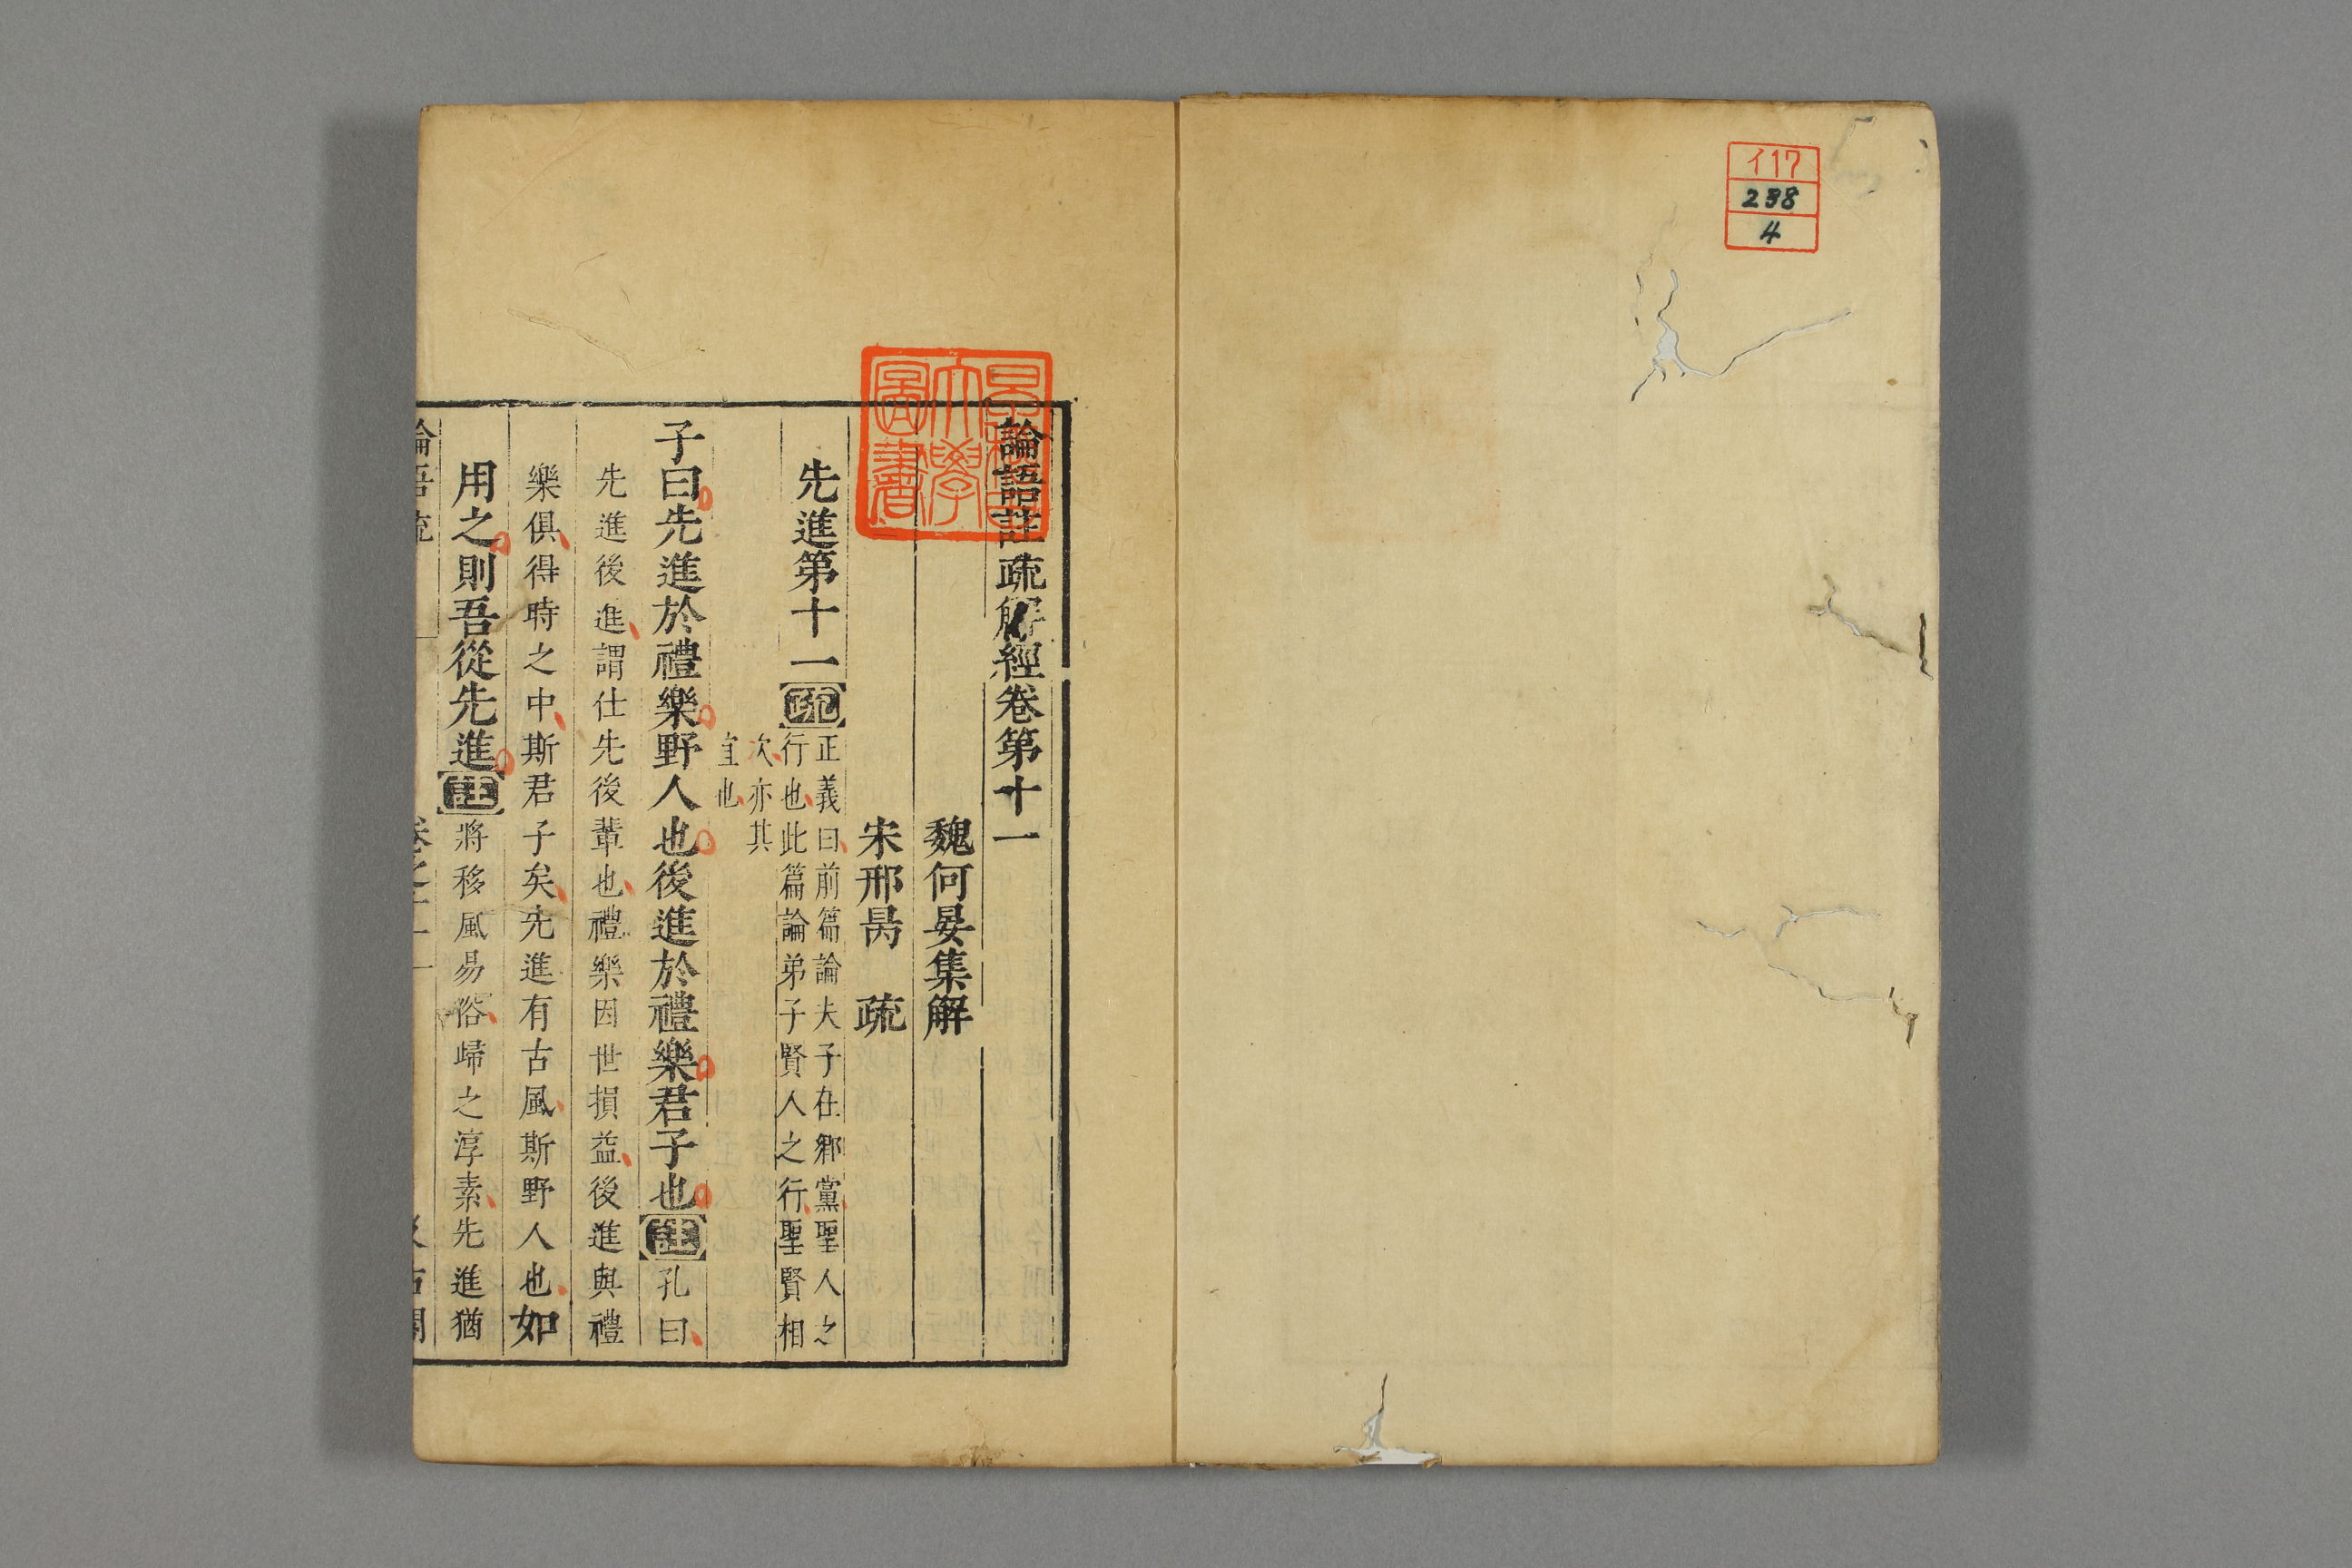 イ17
238
4
論語註疏解經卷第十一
魏何晏集解
宋邢昺 疏
先進第十一疏
正義曰前篇論夫子在鄉黨聖人之
行也此篇論弟子賢人之行聖賢相
次亦其
宜也
子曰先進於禮樂野人也後進於禮樂君子也註孔曰
先進後進謂仕先後輩也禮樂因世損益後進與禮
樂俱得時之中斯君子矣先進有古風斯野人也如
用之則吾從先進註將移風易俗歸之淳素先進猶